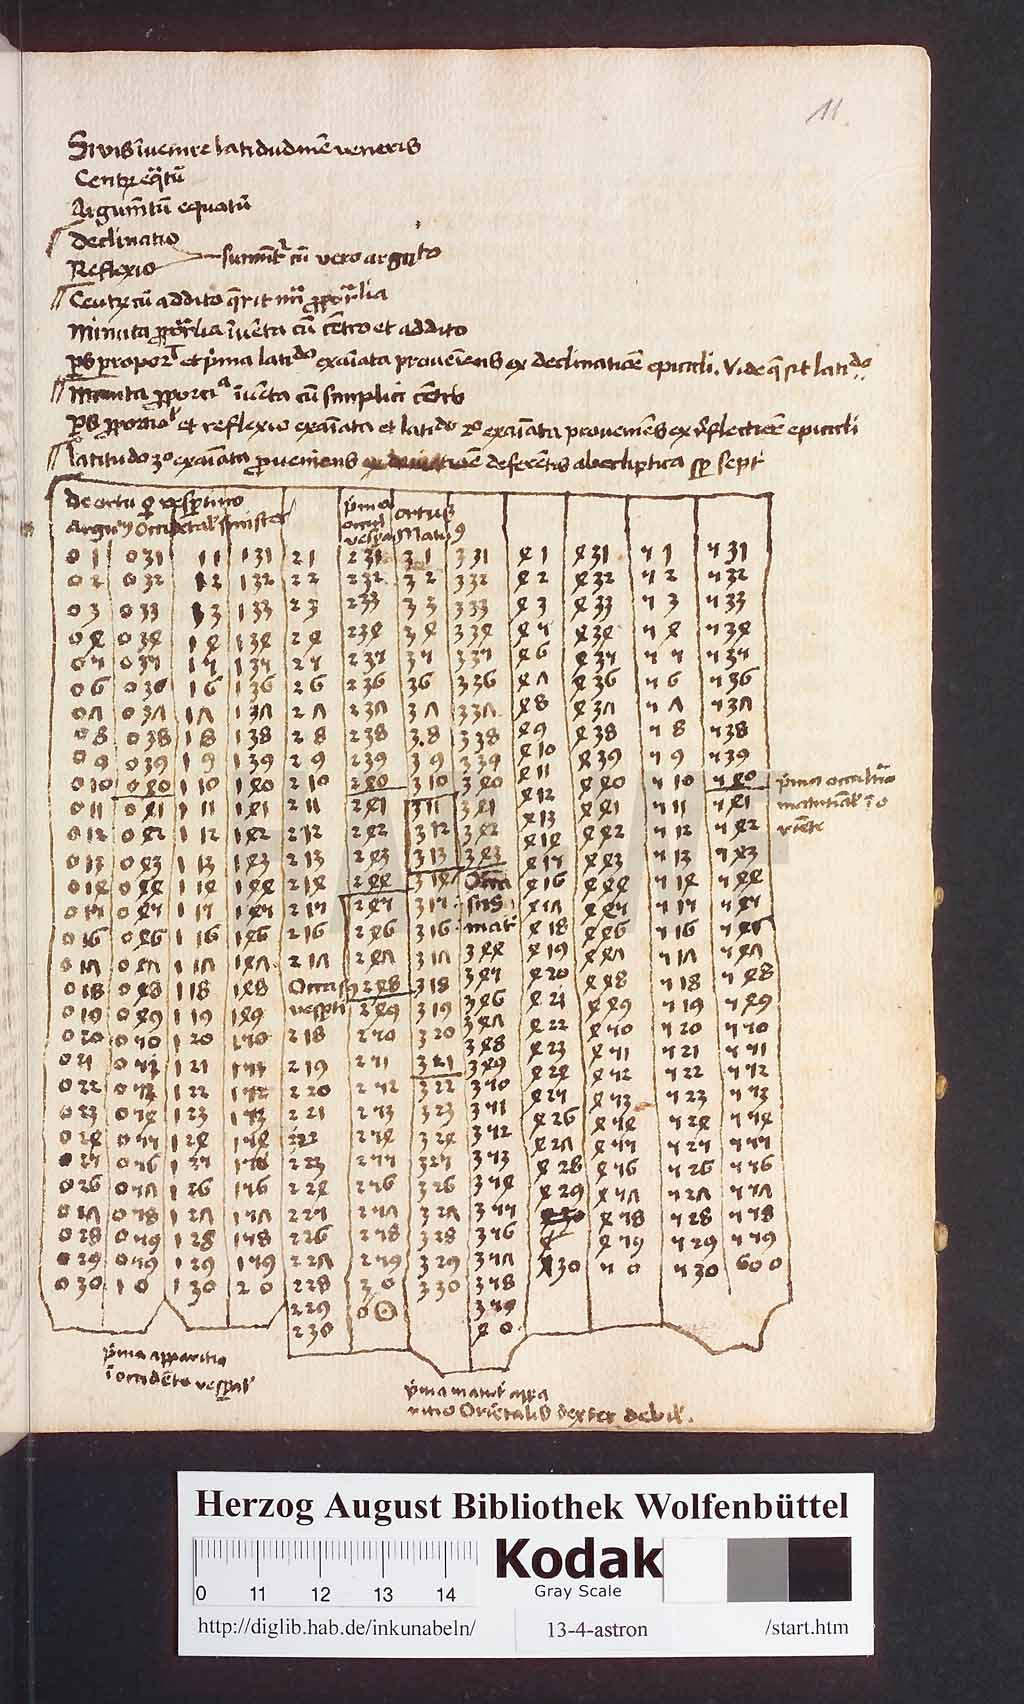 11
Si vis īuenire latidudinē veneris
Centꝝ eq̄tū
Argum̄tū equatū
declinatio
Reflexio
sumūtʳ cū vero argūto
Centꝝ cū addito q̄rit mīa ꝓporͣlia
Minuta ꝓporͣlia īuēta cū cētro et addito
ps propor et p̄ma latiᵈᵒ exaīata proueīens ex declinatiōe epicicli. Vide q̄ sit latiᵈᵒ
Minuta ꝓporciᵃ īuēta cū simplici cētro
ps ꝓporcioˡ et reflexio exaīata et latiᵈᵒ 2ᵒ exaīata proueniēs ex reflectiōe epicicli
latitudo 3ᵒ exaīata ꝓueniens deferētis ab ecliptica sꝑ septͭ
de ortu ♀ vesꝑtino
Argum Occidētalˢ sinister
p̄ma occul vesꝑa
ortus Matu9
0 1 0 31 1 1 1 31 2 1 2 31 3 1 3 31 4 1 4 31 5 1 5 31
0 2 0 32 1 2 1 32 2 2 2 32 3 2 3 32 4 2 4 32 5 2 5 32
0 3 0 33 1 3 1 33 2 3 2 33 3 3 3 33 4 3 4 33 5 3 5 33
0 4 0 34 1 4 1 34 2 4 2 34 3 4 3 34 4 5 4 34 5 4 5 34
0 5 0 35 1 5 1 35 2 5 2 35 3 5 3 35 4 6 4 35 5 5 5 35
0 6 0 36 1 6 1 36 2 6 2 36 3 6 3 36 4 7 4 36 5 6 5 36
0 7 0 37 1 7 1 37 2 7 2 37 3 7 3 37 4 8 4 37 5 7 5 37
0 8 0 38 1 8 1 38 2 8 2 38 3 8 3 38 4 9 4 38 5 8 5 38
0 9 0 39 1 9 1 39 2 9 2 39 3 9 3 39 4 10 4 39 5 9 5 39
0 10 0 40 1 10 1 40 2 10 2 40 3 10 3 40 4 11 4 40 5 10 5 40
0 11 0 41 1 11 1 41 2 11 2 41 3 11 3 41 4 12 4 41 5 11 5 41
0 12 0 42 1 12 1 42 2 12 2 42 3 12 3 42 4 13 4 42 5 12 5 42
4 14
0 13 0 43 1 13 1 43 2 13 2 43 3 13 3 43 4 15 4 43 5 13 5 43
0 14 0 44 1 14 1 44 2 14 2 44 3 14 Occa 4 16 4 44 5 14 5 44
0 15 0 45 1 15 1 45 2 15 2 45 3 15 sus 4 17 4 45 5 15 5 45
0 16 0 46 1 16 1 46 2 16 2 46 3 16 mat 4 18 4 46 5 16 5 46
0 17 0 47 1 17 1 47 2 17 2 47 3 17 3 44 4 19 4 47 5 17 5 47
0 18 0 48 1 18 1 48 Occasus 2 48 3 18 3 45 4 20 4 48 5 18 5 48
0 19 0 49 1 19 1 49 vesptin 2 49 3 19 3 46 4 21 4 49 5 19 5 49
3 47
0 20 0 50 1 20 1 50 2 18 2 50 3 20 3 48 4 22 4 50 5 20 5 50
0 21 0 52 1 21 1 51 2 19 2 51 3 21 3 49 4 23 4 51 5 21 5 51
0 22 0 53 1 22 1 52 2 20 2 52 3 22 3 50 4 24 4 52 5 22 5 52
0 23 0 54 1 23 1 53 2 21 2 53 3 23 3 51 4 25 4 53 5 23 5 53
0 24 0 55 1 24 1 54 2 22 2 54 3 24 3 52 4 26 4 54 5 24 5 54
0 25 0 56 1 25 1 55 2 23 2 55 3 25 3 53 4 27 4 55 5 25 5 55
0 26 0 57 1 26 1 56 2 24 2 56 3 26 3 54 4 28 4 56 5 26 5 56
0 27 0 58 1 27 1 57 2 25 2 57 3 27 3 55 4 29 4 57 5 27 5 57
0 28 0 59 1 28 1 58 2 26 2 58 3 28 3 56 4 58 5 28 5 58
0 29 0 59 1 29 1 59 2 27 2 59 3 29 3 57 4 59 5 29 5 59
0 30 1 0 1 30 2 0 2 28 3 0 3 30 3 58 4 30 5 0 5 30 6 0 0
2 29 3 59
2 30 4 0
p̄ma occultatio
matutinalˢ ī o
riēte
p̄ma apparitio
ī occidēte vesꝑat
p̄ma matut appa
ritio Oriētalis dexter debil.
Herzog August Bibliothek Wolfenbüttel
0 11 12 13 14
Kodak
Gray Scale
http://diglib.hab.de/inkunabeln/ 13-4-astron /start.htm